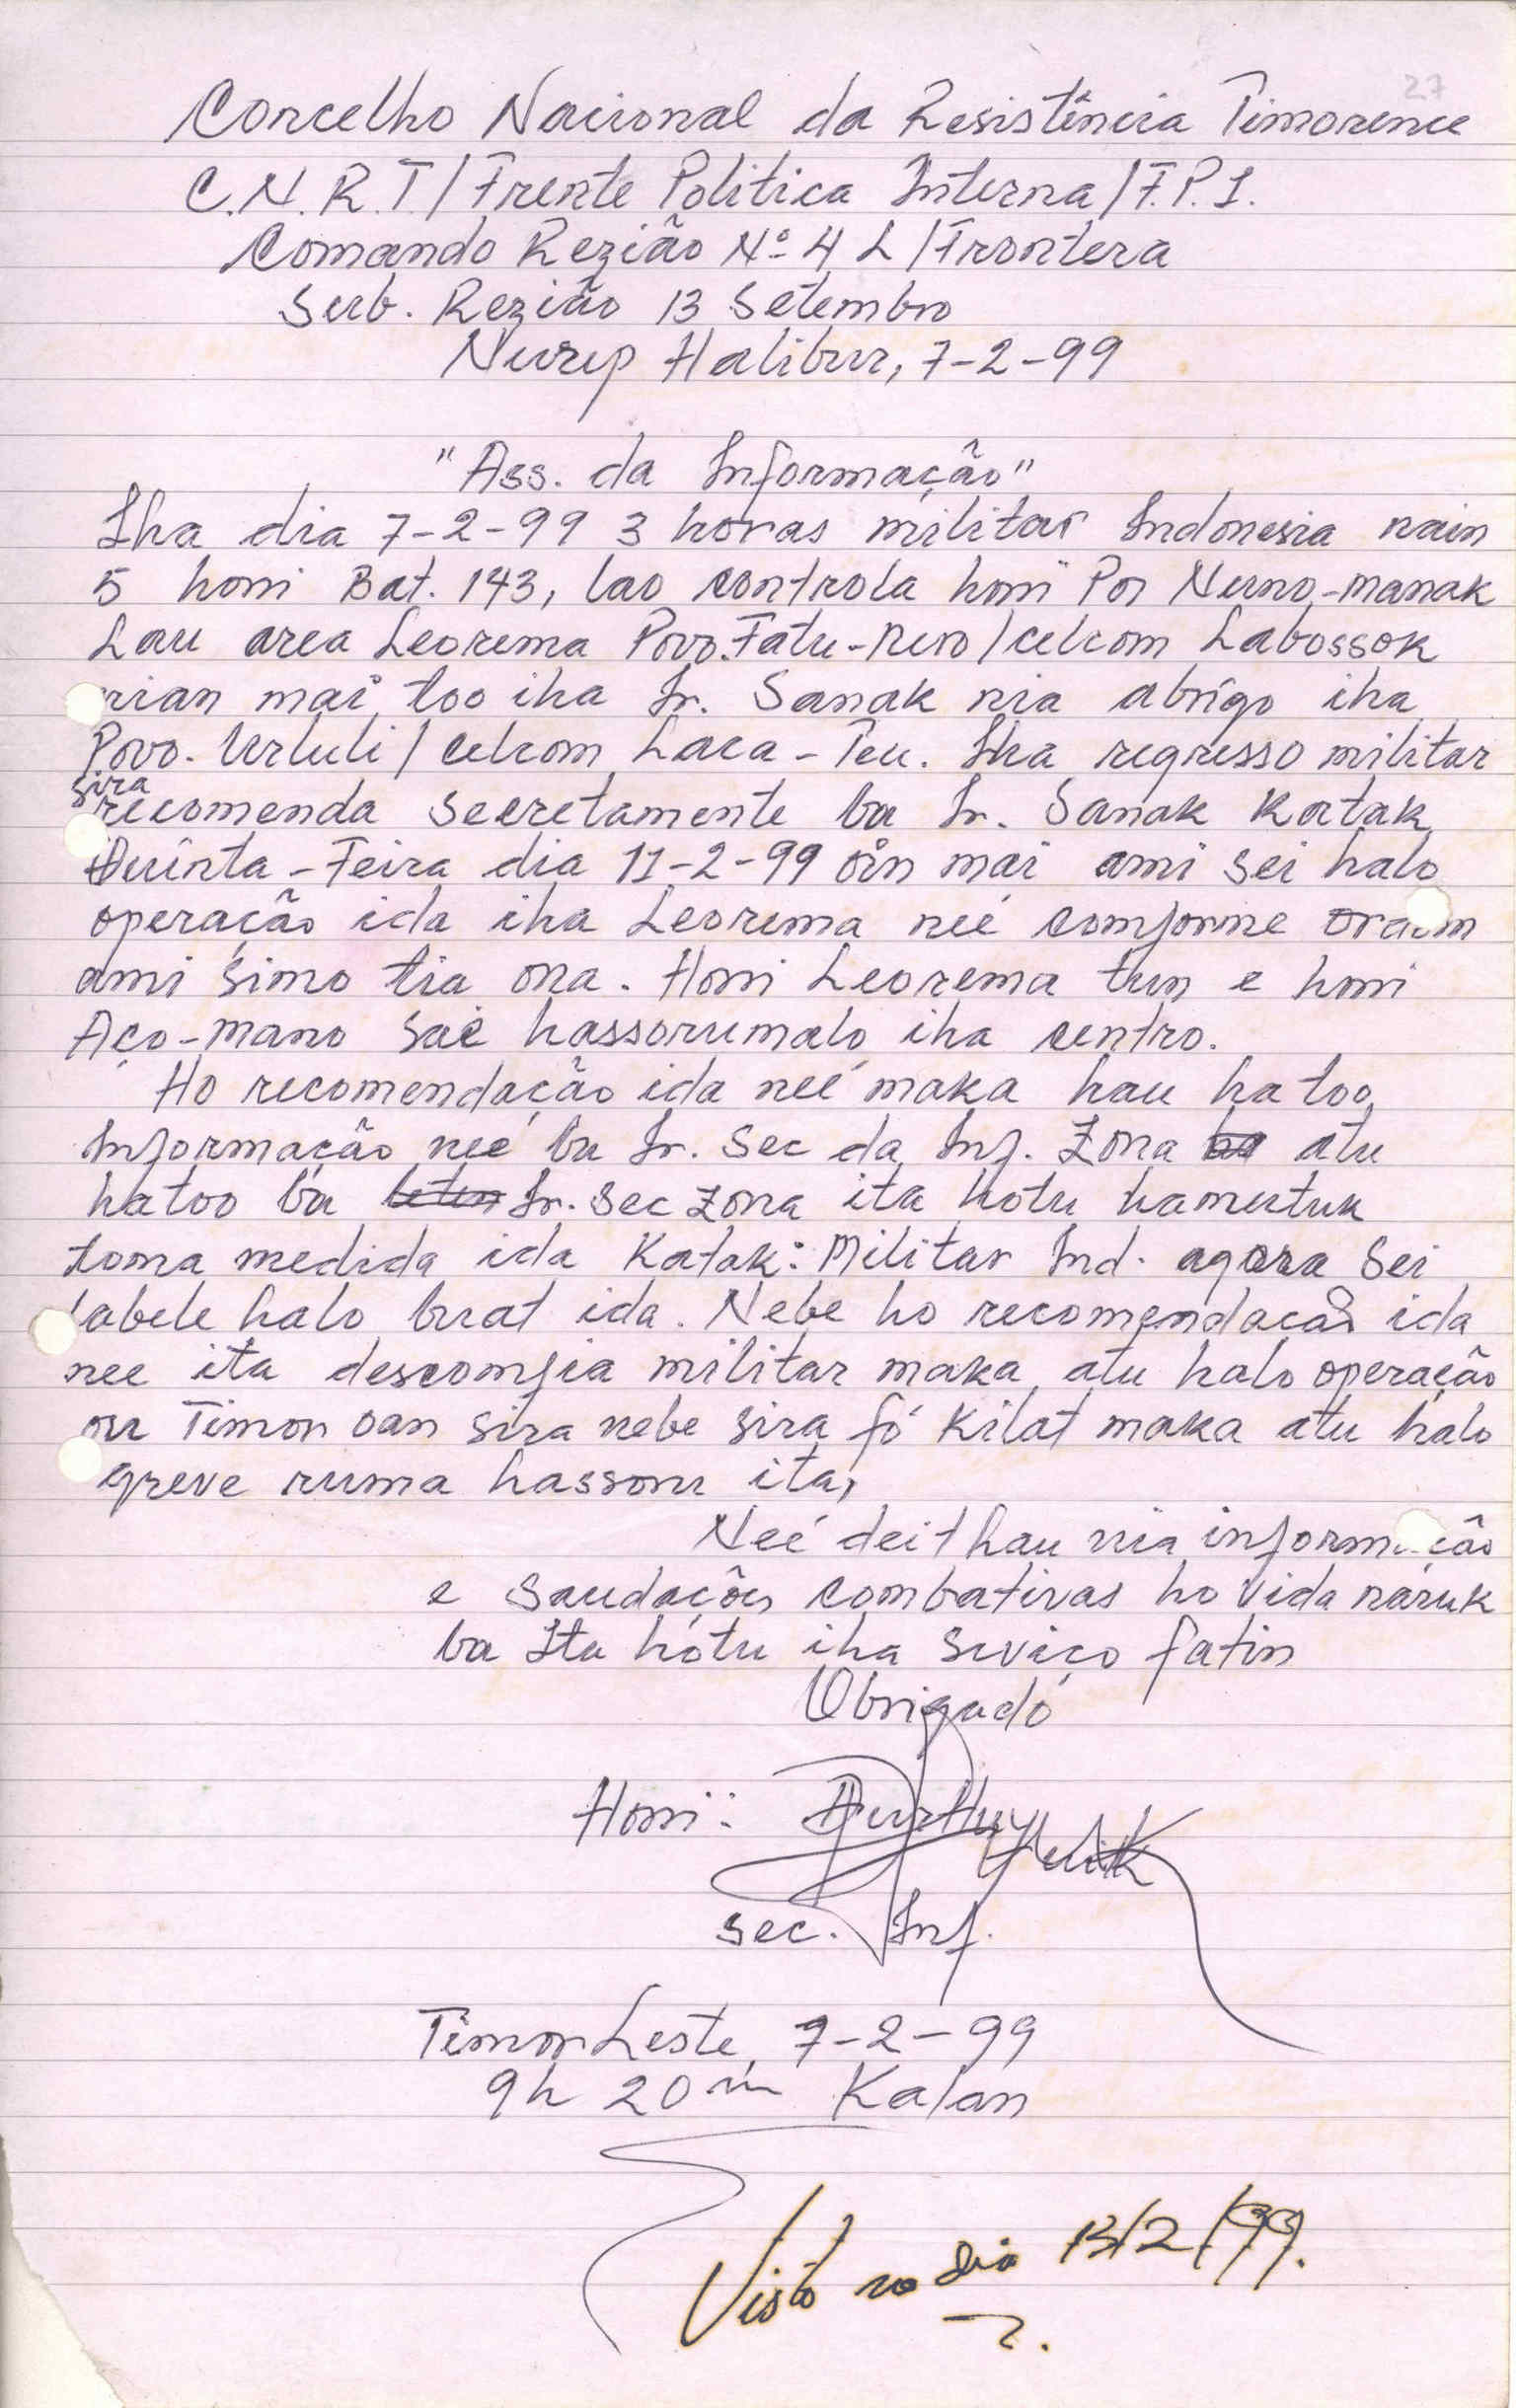 27
Concelho Nacional da Resistência Timorence
C.N.R.T/Frente Politica Interna/F.P.I.
Comando Rezião Nº 4 L/Frontera
Sub. Rezião 13 Setembro
Nurep Halibur, 7-2-99
"Ass. da Informação"
Iha dia 7-2-99 3 horas militar Indonesia nain
5 honi Bat. 143, lao controla honi Pos Nuno-manak
Lau area Leorema Povo. Fatu-nero/celcom Labossok
rian mai too iha Sr. Sanak nia abrigo iha
Povo. Urluli/celcom Laca-Teu. Iha regresso militar
sira recomenda secretamente ba Sr. Sanak Katak
Quinta-Feira dia 11-2-99 oin mai ami sei halo
operação ida iha Leorema neé comforme ordem
ami simo tia ona. Honi Leorema tun e honi
Aço-mano saé hassorumalo iha centro.
Ho recomendação ida neé maka hau hatoo
Informação neé ba Sr. Sec da Inf. Zona ba atu
hatoo ba leten Sr. Sec Zona ita hotu hamutuk
toma medida ida Katak: Militar Ind. agora sei
labele halo buat ida. Nebe ho recomendacão ida
nee ita descomfia militar maka atu halo operação
ou Timor oan sira nebe sira fó Kilat maka atu halo
greve ruma hassoru ita,
Neé deit hau nia informação
e Saudações combativas ho vida náruk
ba Ita hótu iha Seviço fatin
Obrigadó
Honi:
Sec. Inf.
Timor Leste, 7-2-99
9h 20m Kalan
Visto no dia 13/2/99.